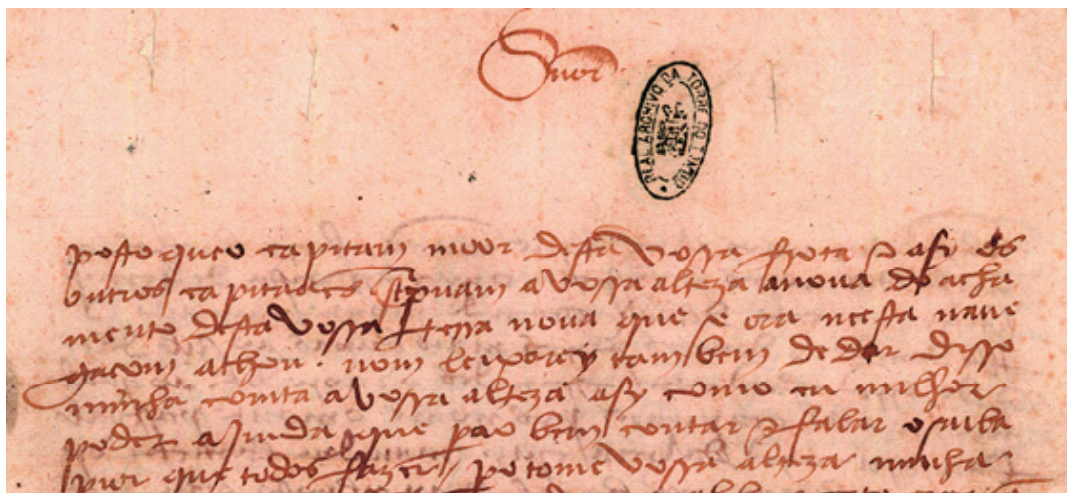 Snor
REAL ARCHIVO DA TORRE DO TOMBO
posto queo capitam moor desta vossa frota e asy os
outros capitaães screpuam a vossa alteza anoua do acha
mento desta vossa terra noua que se ora neesta naue
gaçom achou. nom leixarey tambem de dar disso
minha comta avossa alteza asy como eu milhor
poder ajmda que pera o bem contar e falar o saiba
pior que todos fazer / pero tome vossa alteza minha